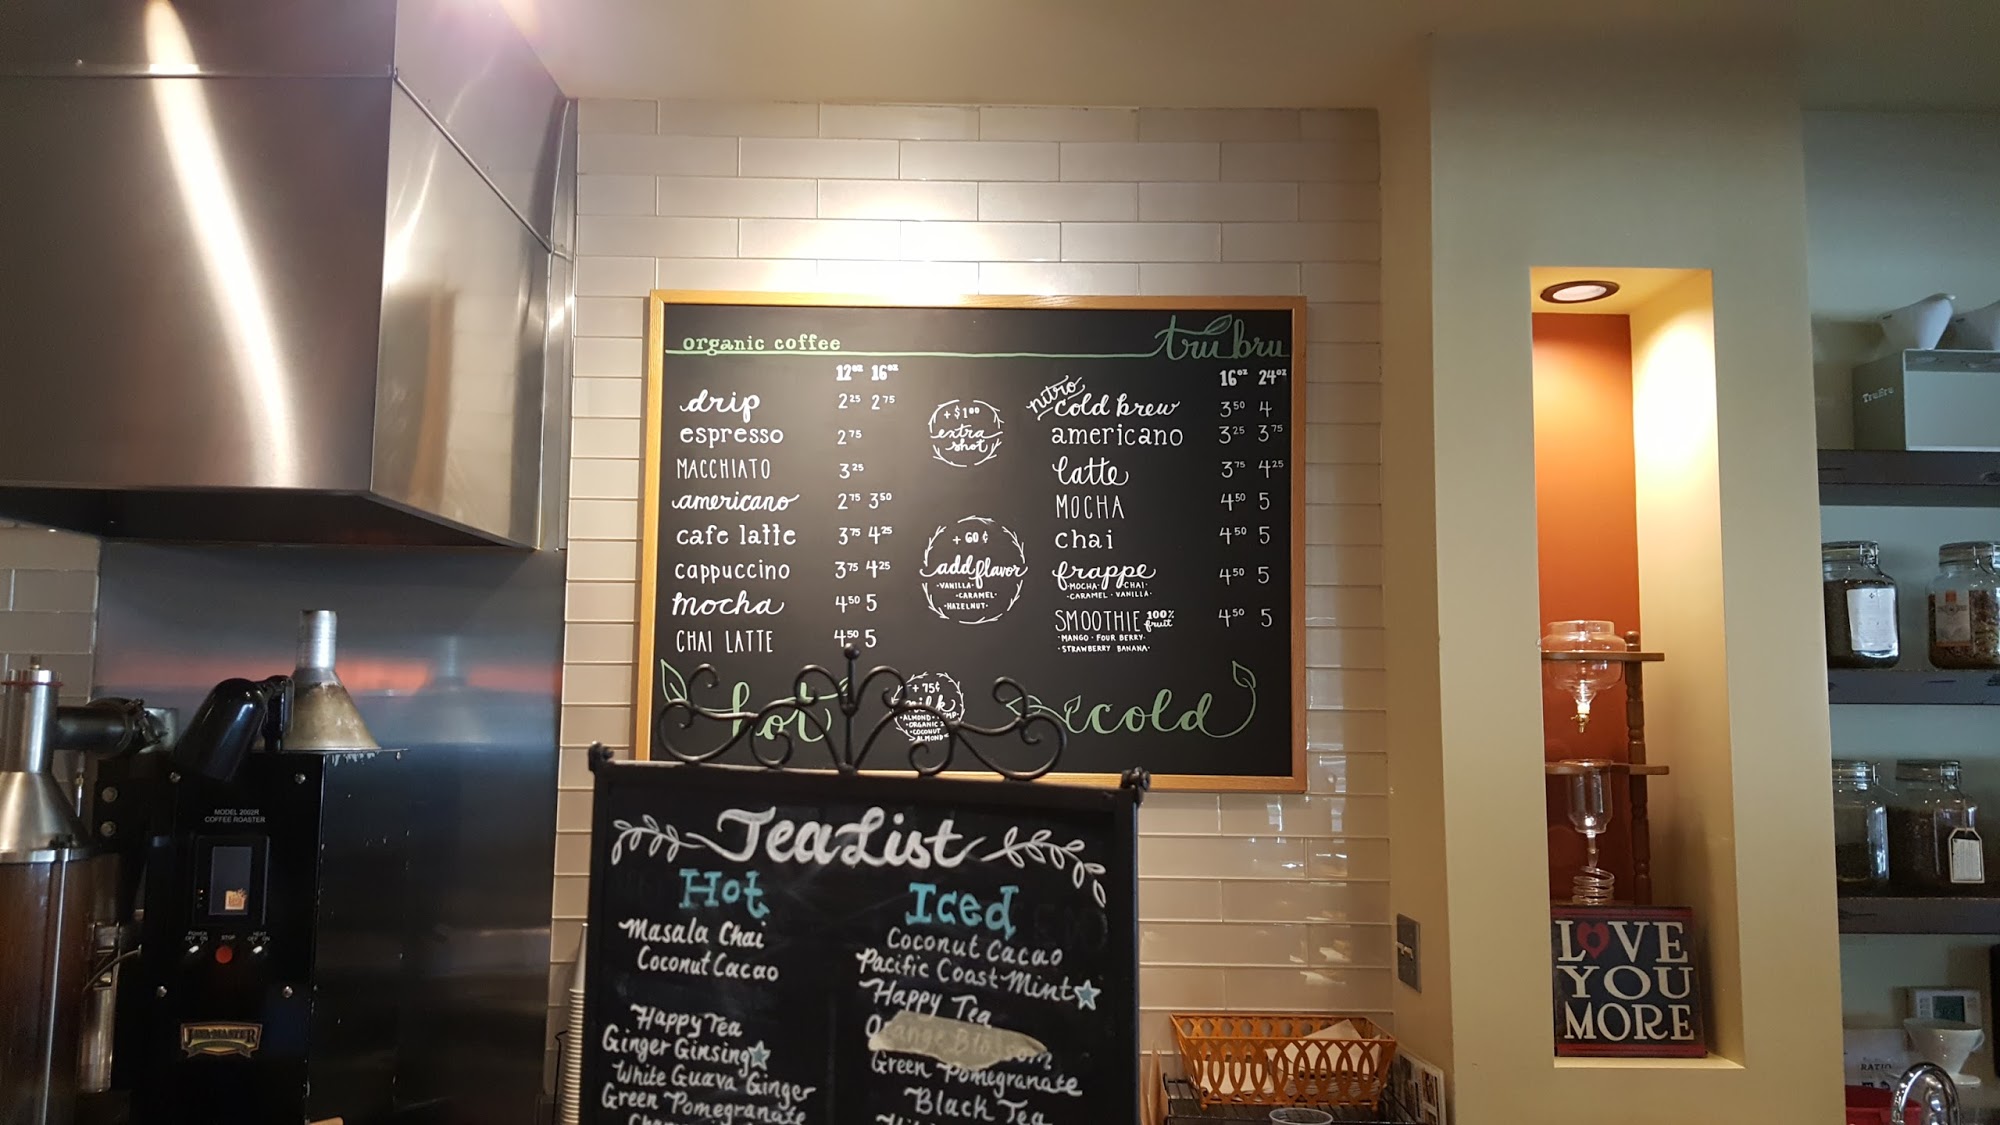 organic coffee
tru bru
12oz 16oz
drip 2.25 2.75
espresso 2.75
MACCHIATO 3.25
americano 2.75 3.50
cafe latte 3.75 4.25
cappuccino 3.75 4.25
mocha 4.50 5
CHAI LATTE 4.50 5
hot
+ $1.00
extra
shot
+ 60¢
add flavor
·VANILLA·
·CARAMEL·
·HAZELNUT·
+ 75¢
milk
ALMOND
·ORGANIC
·COCONUT
ALMOND
16oz 24oz
nitro
cold brew 3.50 4
americano 3.25 3.75
latte 3.75 4.25
MOCHA 4.50 5
chai 4.50 5
frappe 4.50 5
·MOCHA· CHAI·
·CARAMEL· VANILLA·
SMOOTHIE 100% fruit 4.50 5
·MANGO· FOUR BERRY·
·STRAWBERRY BANANA·
cold
Tea List
Hot
Masala Chai
Coconut Cacao
Happy Tea
Ginger Ginsing
White Guava Ginger
Green Pomegranate
Iced
Coconut Cacao
Pacific Coast Mint
Happy Tea
Orange Blossom
Green Pomegranate
Black Tea
MODEL 2002R
COFFEE ROASTER
POWER
OFF ON
STOP
HEAT
OFF ON
LOVE
YOU
MORE
TruBru
RATIO